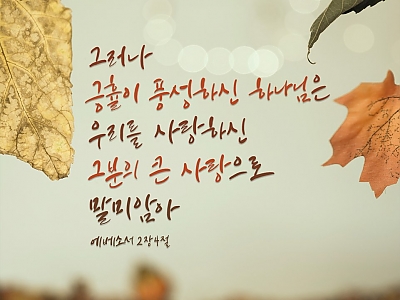 그러나
긍휼이 풍성하신 하나님은
우리를 사랑하신
그분의 큰 사랑으로
말미암아
에베소서 2장4절